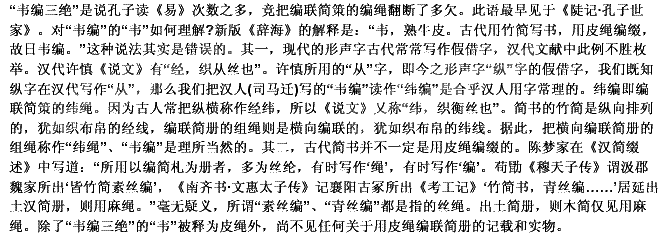 “韦编三绝”是说孔子读《易》次数之多，竞把编联简策的编绳翻断了多次。此语最早见于《陡记·孔子世
家》。对“韦编”的“韦”如何理解?新版《辞海》的解释是：“韦，熟牛皮。古代用竹简写书，用皮绳编缀，
故日韦编。”这种说法其实是错误的。其一，现代的形声字古代常常写作假借字，汉代文献中此例不胜枚
举。汉代许慎《说文》有“经，织从丝也”。许慎所用的“从”字，即今之形声字“纵”字的假借字，我们既知
纵字在汉代写作“从”，那么我们把汉人(司马迁)写的“韦编”读作“纬编”是合乎汉人用字常理的。纬编即编
联简策的纬绳。因为古人常把纵横称作经纬，所以《说文》又称“纬，织衡丝也”。简书的竹简是纵向排列
的，犹如织布帛的经线，编联简册的组绳则是横向编联的，犹如织布帛的纬线。据此，把横向编联简册的
组绳称作“纬绳”、“韦编”是理所当然的。其二，古代简书并不一定是用皮绳编缀的。陈梦家在《汉简缀
述》中写道：“所用以编简札为册者，多为丝纶，有时写作‘绳’，有时写作‘编’。苟勖《穆天子传》谓汲郡
魏家所出‘皆竹简素丝编’，《南齐书·文惠太子传》记襄阳古冢所出《考工记》‘竹简书，青丝编……’居延出
土汉简册，则用麻绳。”毫无疑义，所谓“素丝编”、“青丝编”都是指的丝绳。出土简册，则木简仅见用麻
绳。除了“韦编三绝”的“韦”被释为皮绳外，尚不见任何关于用皮绳编联简册的记载和实物。